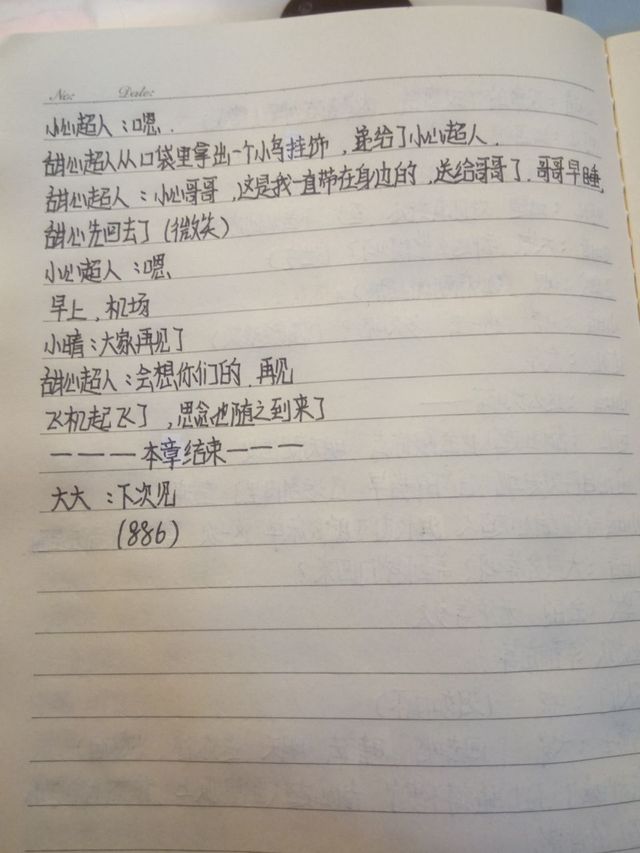 No:    Date:
小心超人：嗯.
甜心超人从口袋里拿出一个小鸟挂饰，递给了小心超人.
甜心超人：小心哥哥，这是我一直带在身边的，送给哥哥了.哥哥早睡,
甜心先回去了(微笑)
小心超人：嗯.
早上，机场
小晴：大家再见了
甜心超人：会想你们的.再见
飞机起飞了，思念也随之到来了
————本章结束———
大大：下次见
(886)